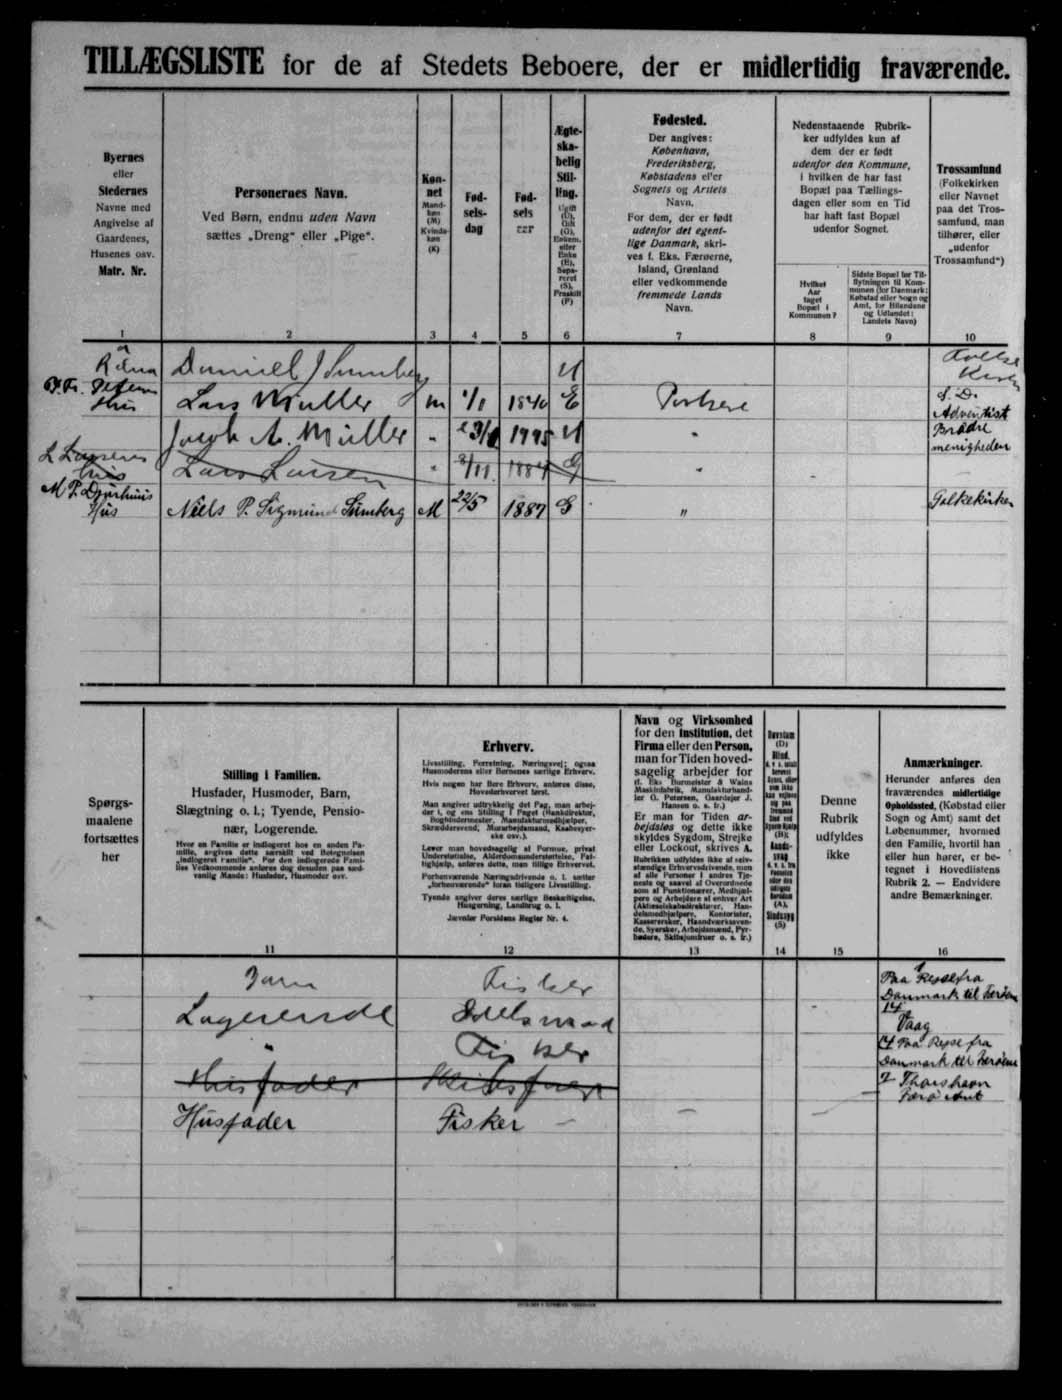 TILLÆGSLISTE for de af Stedets Beboere, der er midlertidig fraværende.
Byernes
eller
Stedernes
Navne med
Angivelse af
Gaardenes,
Husenes osv.
Matr. Nr.
1
Personernes Navn.
Ved Børn, endnu uden Navn
sættes „Dreng" eller „Pige".
2
Køn-
net
Mand-
køn
(M)
Kvinde-
køn
(K)
3
Fød-
sels-
dag
4
Fød-
sels
aar
5
Ægte-
ska-
belig
Stil-
ling.
Ugift
(U),
Gift
(G),
Enkem.
eller
Enke
(E),
Sepa-
reret
(S),
Fraskilt
(F)
6
Fødested.
Der angives:
København,
Frederiksberg,
Købstadens eller
Sognets og Amtets
Navn.
For dem, der er født
udenfor det egent-
lige Danmark, skri-
ves f. Eks. Færøerne,
Island, Grønland
eller vedkommende
fremmede Lands
Navn.
7
Nedenstaaende Rubrik-
ker udfyldes kun af
dem der er født
udenfor den Kommune,
i hvilken de har fast
Bopæl paa Tællings-
dagen eller som en Tid
har haft fast Bopæl
udenfor Sognet.
Hvilket
Aar
taget
Bopæl i
Kommunen?
8
Sidste Bopæl før Til-
flytningen til Kom-
munen (for Danmark:
Købstad eller Sogn og
Amt, for Bilandene
og Udlandet:
Landets Navn)
9
Trossamfund
(Folkekirken
eller Navnet
paa det Tros-
samfund, man
tilhører, eller
„udenfor
Trossamfund")
10
Daniel J Sumberg U
Hus Lars Müller m 1/1 1840 E Porkere S. D. Adventist
Jacob A. Müller „ U „ Brødre
menigheden
L Larsens
hus Lars Larsen „ 8/11 1884 G „
M P. Djurhuus
Hus Niels P. Sigmund Sumberg M 22/5 1887 G „ Folkekirken
Spørgs-
maalene
fortsættes
her
Stilling i Familien.
Husfader, Husmoder, Barn,
Slægtning o. l.; Tyende, Pensio-
nær, Logerende.
Hvor en Familie er indlogeret hos en anden Fa-
milie, angives dette særskilt ved Betegnelsen
„indlogeret Familie". For den indlogerede Fami-
lies Vedkommende anføres dog desuden paa sæd-
vanlig Maade: Husfader, Husmoder osv.
11
Erhverv.
Livsstilling, Forretning, Næringsvej; ogsaa
Husmoderens eller Børnenes særlige Erhverv.
Hvis nogen har flere Erhverv, anføres disse,
Hovederhvervet først.
Man angiver udtrykkelig det Fag, man arbej-
der i, og ens Stilling i Faget (Bankdirektør,
Bogbindermester, Manufakturmedhjælper,
Skræddersvend, Murarbejdsmand, Kaabesyer-
ske osv.).
Lever man hovedsagelig af Formue, privat
Understøttelse, Alderdomsunderstøttelse, Fat-
tighjælp, anføres dette, men tillige Erhvervet.
Forhenværende Næringsdrivende o. l. sætter
„forhenværende" foran tidligere Livsstilling.
Tyende angiver deres særlige Beskæftigelse,
Husgerning, Landbrug o. l.
Jævnfør Forsidens Regler Nr. 4.
12
Navn og Virksomhed
for den Institution, det
Firma eller den Person,
man for Tiden hoved-
sagelig arbejder for
(f. Eks. Burmeister & Wains
Maskinfabrik, Manufakturhand-
ler G. Petersen, Gaardejer J.
Hansen o. s. fr.)
Er man for Tiden ar-
bejdsløs og dette ikke
skyldes Sygdom, Strejke
eller Lockout, skrives A.
Rubrikken udfyldes ikke af selv-
stændige Erhvervsdrivende, men
af alle Personer i andres Tje-
neste og saavel af Overordnede
som af Funktionærer, Medhjæl-
pere og Arbejdere af enhver Art
(Aktieselskabsdirektører, Han-
delsmedhjælpere, Kontorister,
Kassererskor, Haandværkssven-
de, Syersker, Arbejdsmænd, Fyr-
bødere, Skibsjomfruer o. s. fr.)
13
Døvstum
(D)
Blind,
14
Denne
Rubrik
udfyldes
ikke
15
Anmærkninger.
Herunder anføres den
fraværendes midlertidige
Opholdssted, (Købstad eller
Sogn og Amt) samt det
Løbenummer, hvormed
den Familie, hvortil han
eller hun hører, er be-
tegnet i Hovedlistens
Rubrik 2. — Endvidere
andre Bemærkninger.
16
Barn Fisker Paa Rejse fra
Danmark til Færøerne
Logerende 14
Vaag
„ Fisker 14 Paa Rejse fra
Danmark til Færøerne
Husfader Skibsfører 7 Thorshavn
Færø Amt
Husfader Fisker — — —